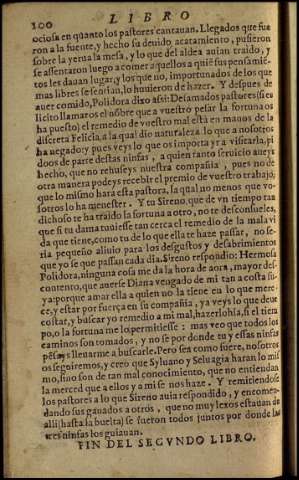 200 LIBRO
ociosa en quanto los pastores cantauan. Llegados que fue
ron a la fuente, y hecho su deuido acatamiento, pusieron
sobre la yerua la mesa, y lo que del aldea auian traido, y
se assentaron luego a comer aquellos a quiẽ sus pensamiẽ-
tos les dauan lugar, y los que no, importunados de los que
mas libres se sentian, lo huuieron de hazer. Y despues de
auer comido, Polidora dixo assi: Desamados pastores (si es
licito llamaros el nõbre que a vuestro pesar la fortuna os
ha puesto) el remedio de vuestro mal està en manos de la
discreta Felicia, a la qual dio naturaleza lo que a nosotros
ha negado: y pues veys lo que os importa yr a visitarla, pi
doos de parte destas ninfas, a quien tanto seruicio aueys
hecho, que no rehuseys nuestra compañia, pues no de
otra manera podeys recebir el premio de vuestro trabajo;
que lo mismo hara esta pastora, la qual no menos que vo-
sotros lo ha menester. Y tu Sireno, que de vn tiempo tan
dichoso te ha traido la fortuna a otro, no te desconsueles,
que si tu dama tuuiesse tan cerca el remedio de la mala vi
da que tiene, como tu de lo que ella te haze passar, no se-
ria pequeño aliuio para los desgustos y desabrimientos
que yo se que passan cada dia. Sireno respondio: Hermosa
Polidora, ninguna cosa me da la hora de aora, mayor des-
contento, que auerse Diana vengado de mi tan a costa su-
ya: porque amar ella a quien no la tiene en lo que mere-
ce, y estar por fuerça en su compañia, ya veys lo que deue
costar, y buscar yo remedio a mi mal, hazerlohia, si el tiem
po, o la fortuna me lo permitiesse: mas veo que todos los
caminos son tomados, y no se por donde tu y essas ninfas
pẽsays lleuarme a buscarle. Pero sea como fuere, nosotros
os seguiremos, y creo que Syluano y Seluagia haran lo mis
mo, sino son de tan mal conocimiento, que no entiendan
la merced que a ellos y a mi se nos haze. Y remitiendose
los pastores a lo que Sireno auia respondido, y encomen-
dando sus ganados a otros, que no muy lexos estauan de
alli (hasta la buelta) se fueron todos juntos por donde las
tres ninfas los guiauan.
FIN DEL SEGVNDO LIBRO.